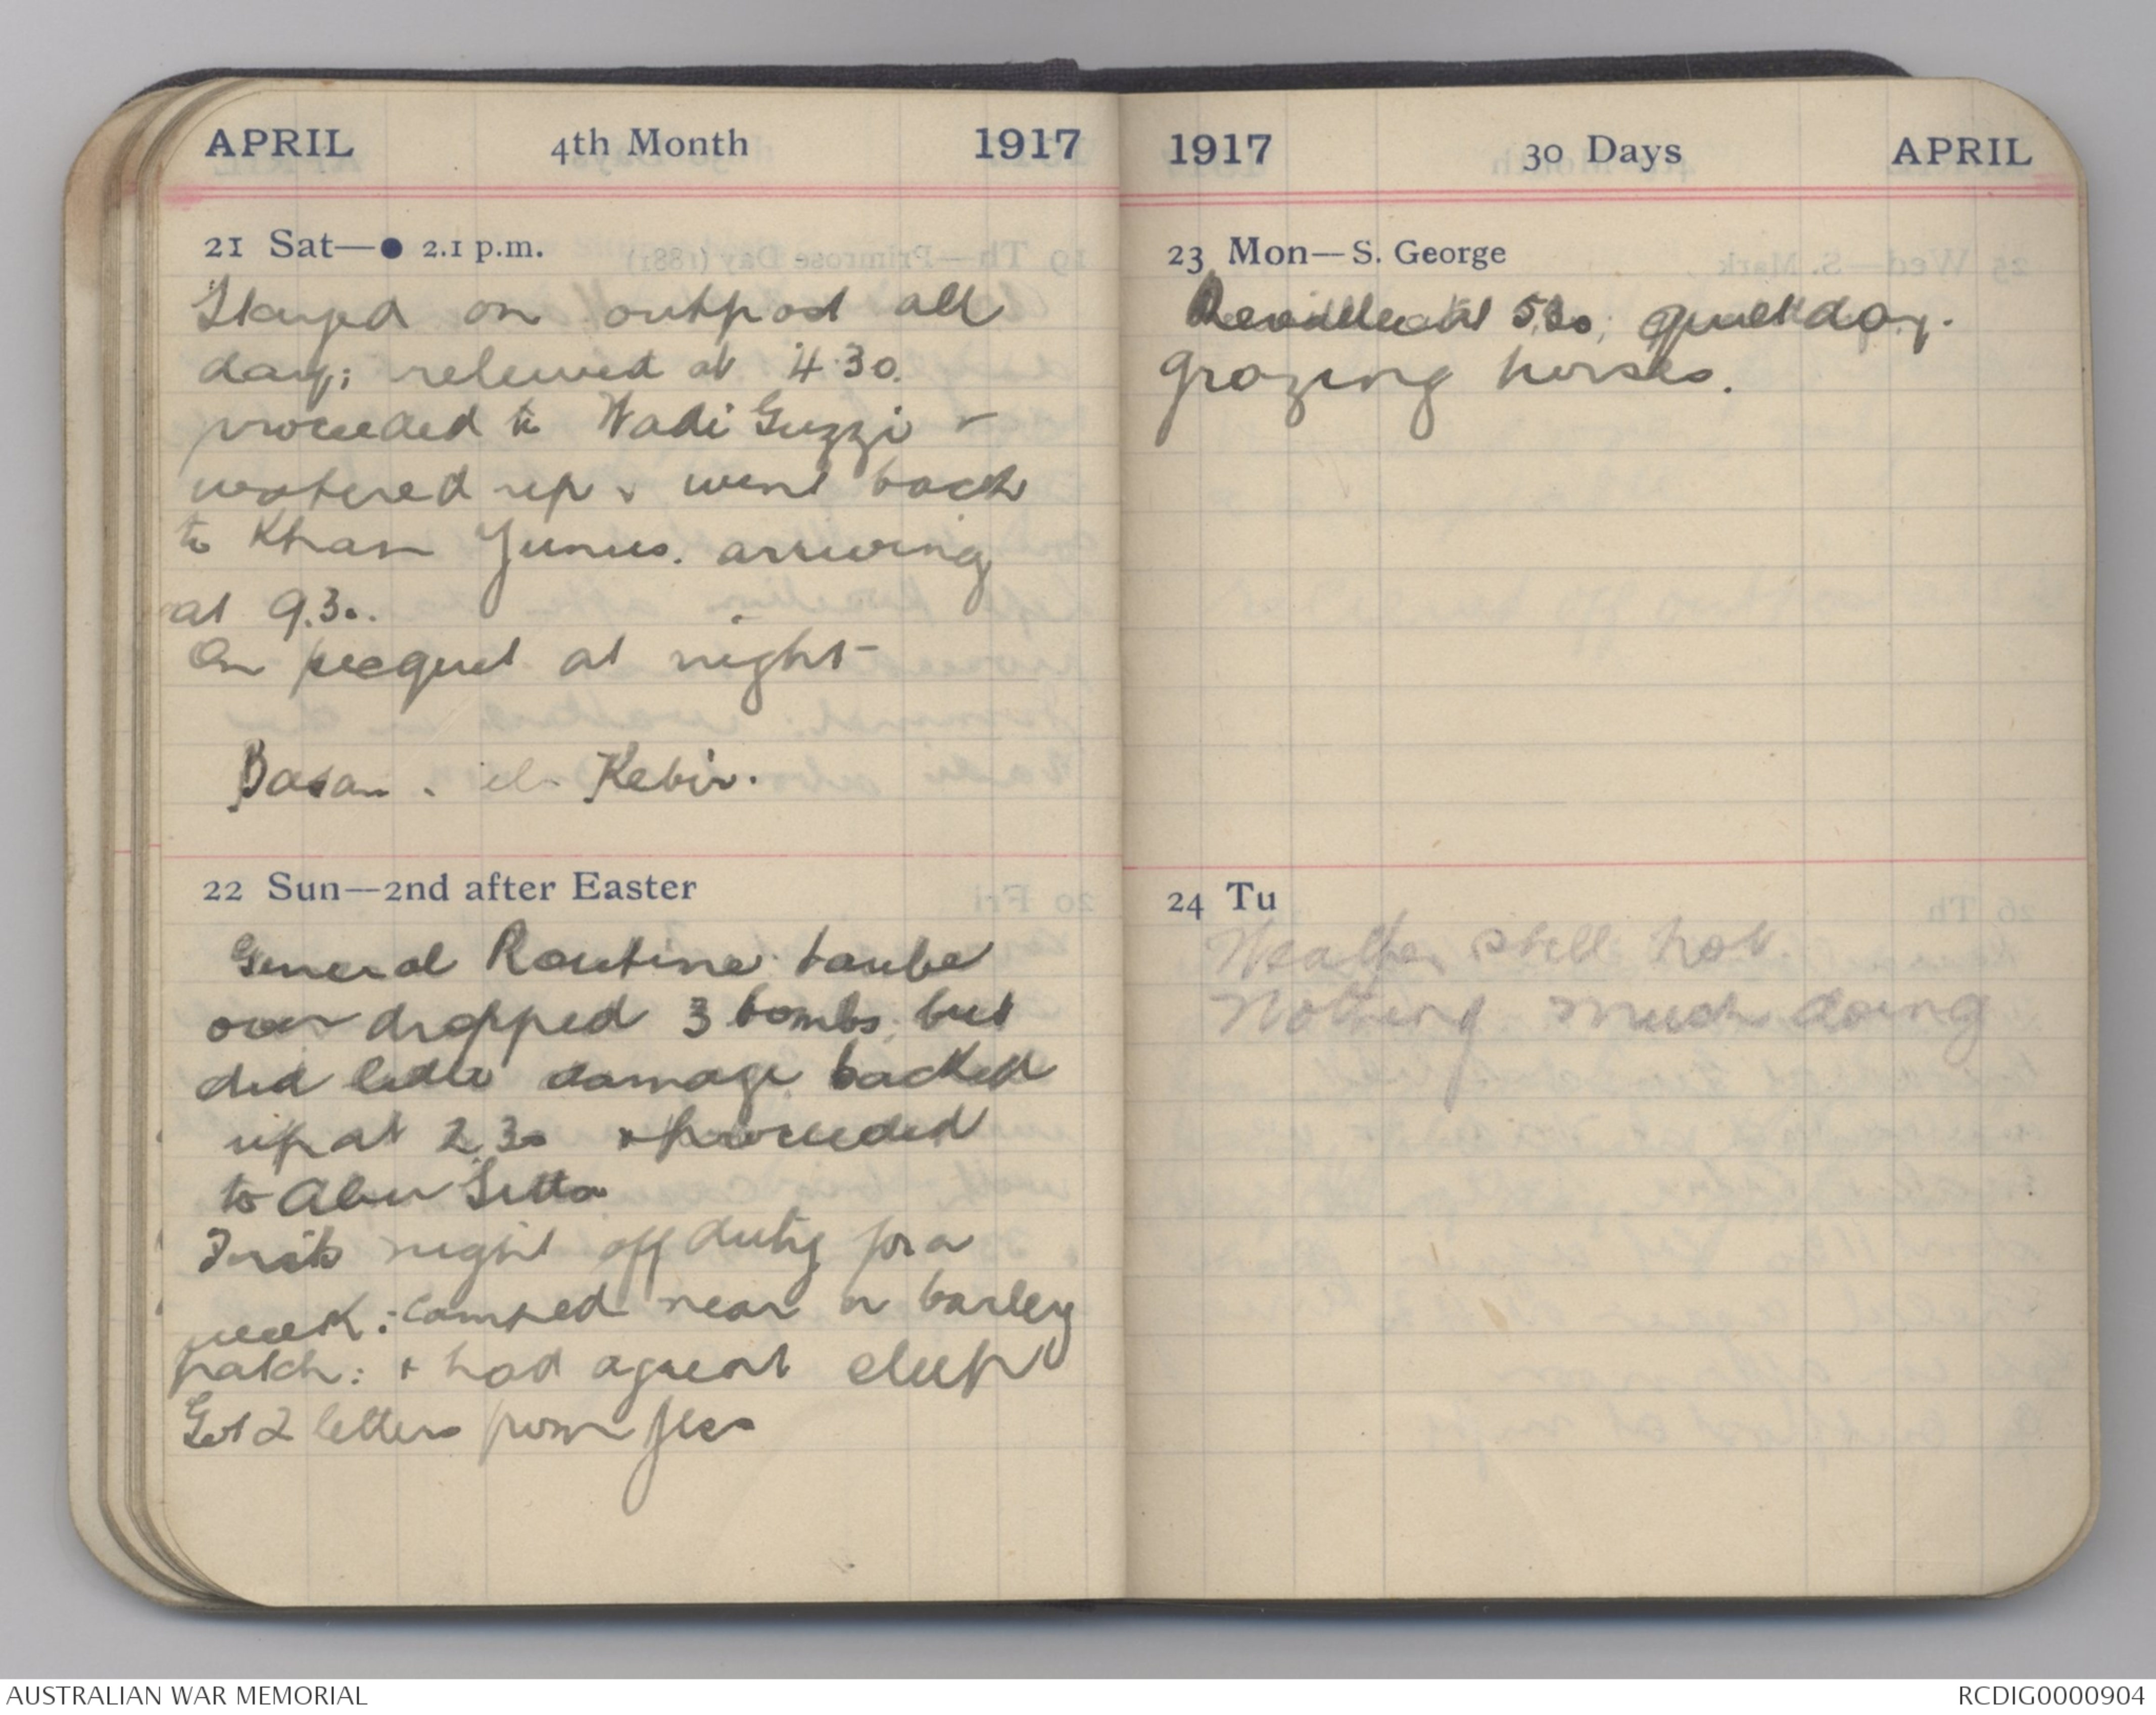 APRIL 4th Month 1917
21 Sat—● 2.1 p.m.
Stayed on outpost all
day; releived at 4.30.
proceeded to Wadi Guzzi -
watered up & went back
to Khan Yunus. arriving
at 9.30.
On picquet at night-
Basan. el. Kebir.
22 Sun—2nd after Easter
General Routine taube
over dropped 3 bombs, but
did little damage. backed
up at 2.30 & proceeded
to Abu Sitta
First night off duty for a
week: camped near a barley
patch: & had a great sleep
Got 2 letters from Jess
1917 30 Days APRIL
23 Mon—S. George
Reveille at 5.30, quiet day.
grazing horses.
24 Tu
Weather still hot.
Nothing much doing
AUSTRALIAN WAR MEMORIAL RCDIG0000904